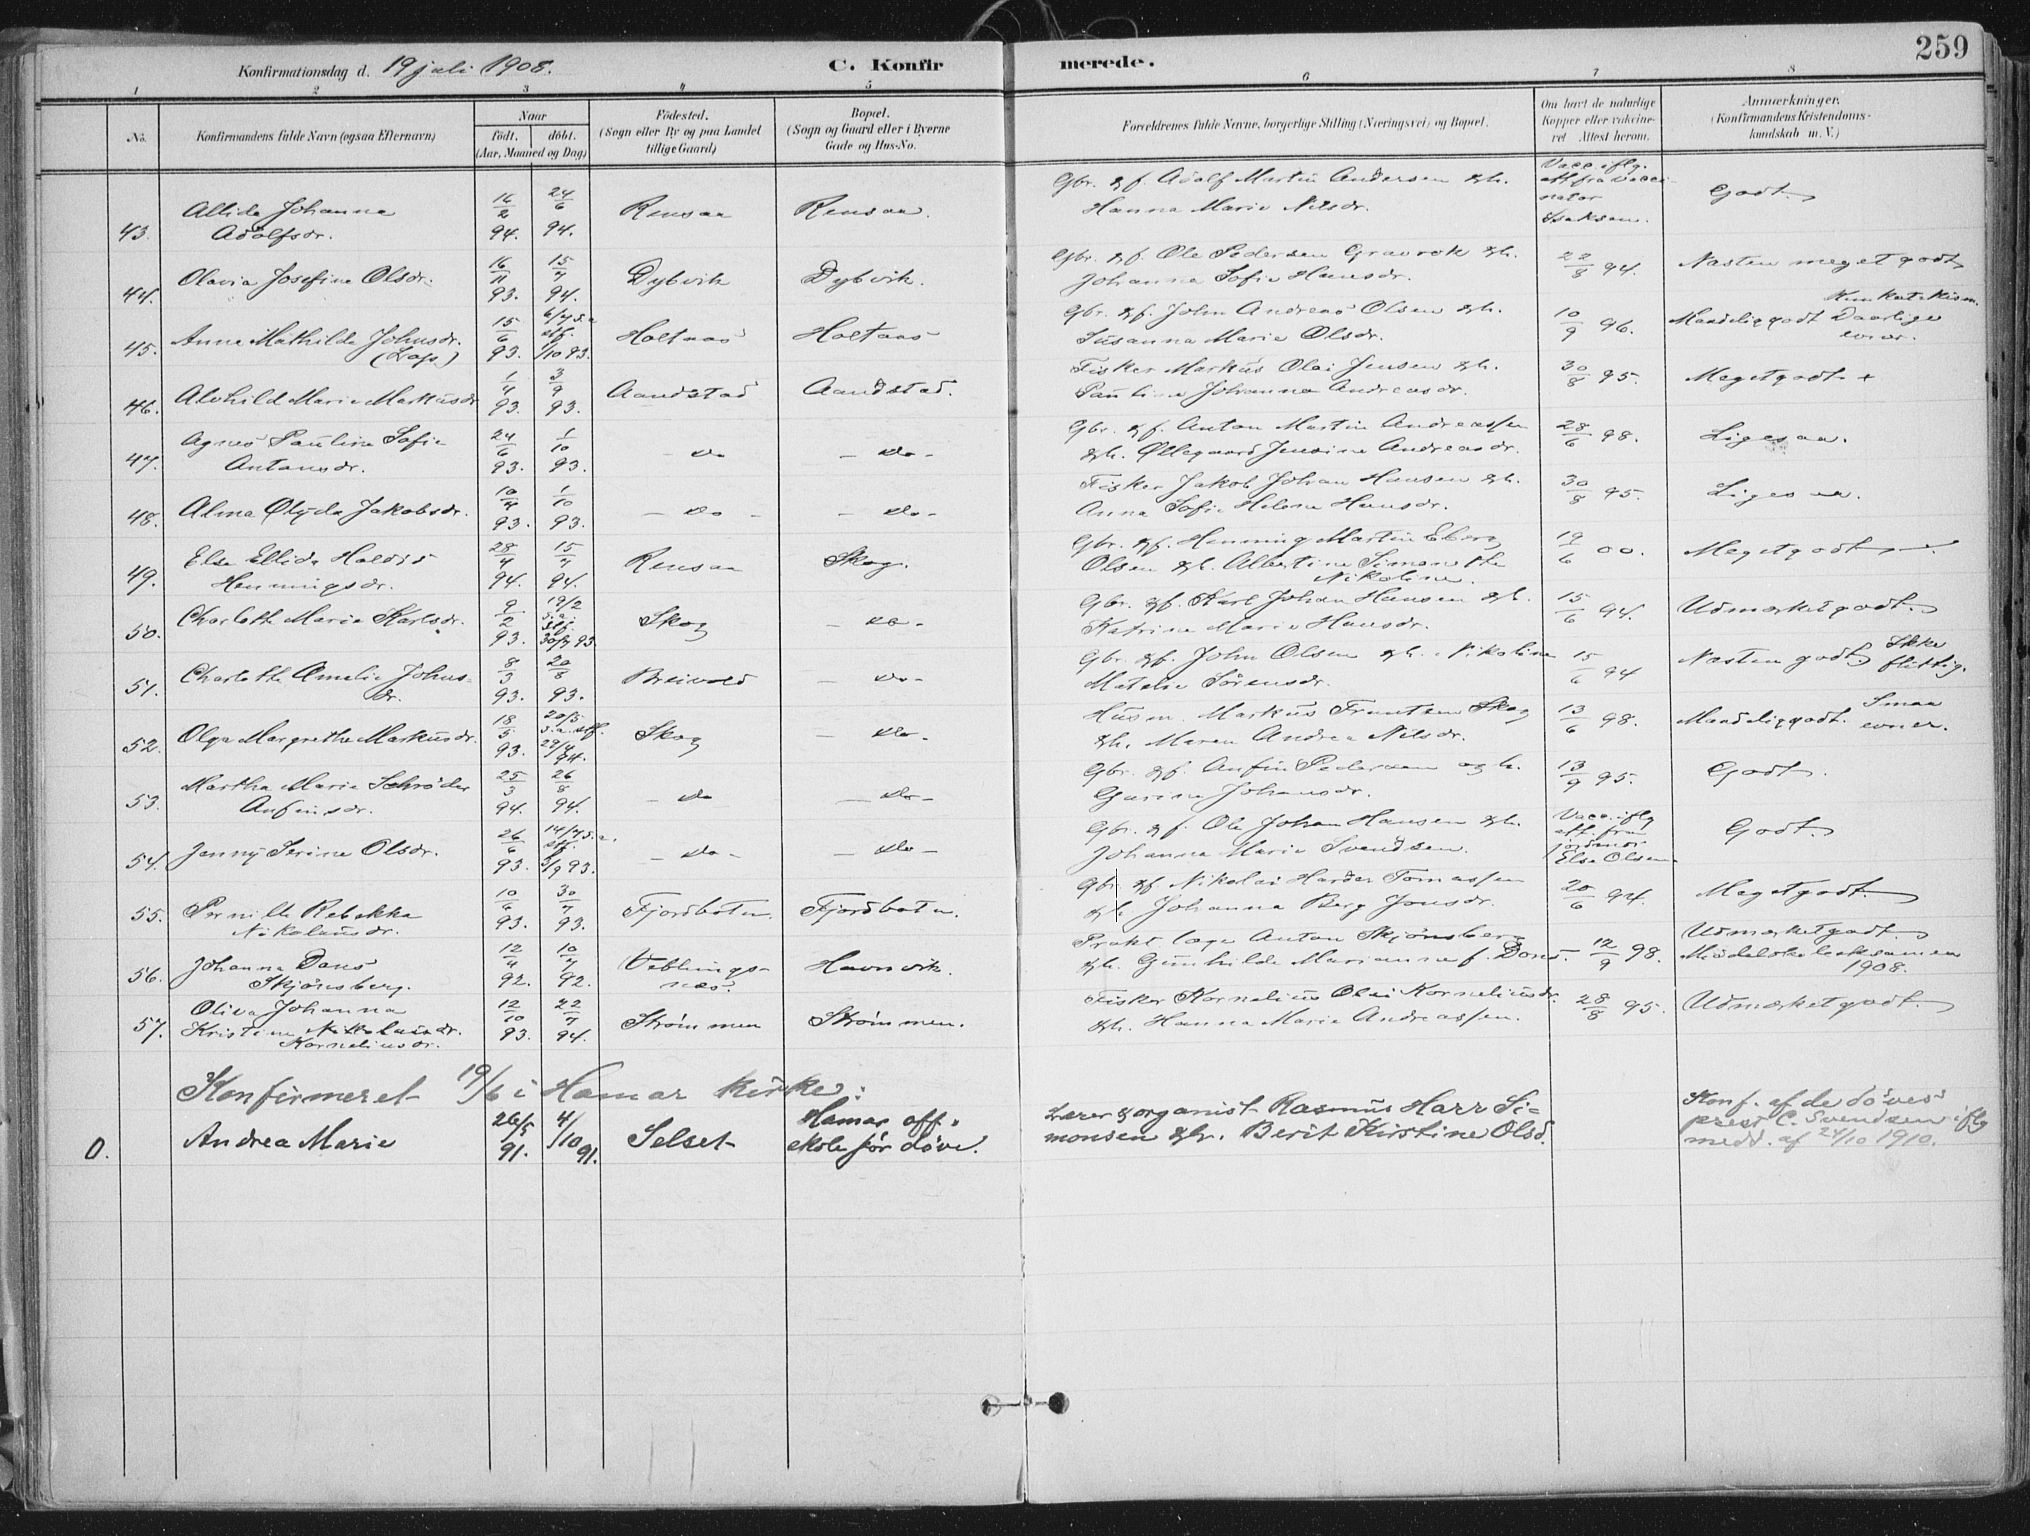 259
Konfirmationsdag d. 19 juli 1908.
C. Konfirmerede.
1 2 3 4 5 6 7 8
No.
Konfirmandens fulde Navn (ogsaa Efternavn)
Naar
födt. döbt.
(Aar, Maaned og Dag)
Födested.
(Sogn eller By og paa Landet
tillige Gaard)
Bopæl.
(Sogn og Gaard eller i Byerne
Gade og Hus-No.
Forældrenes fulde Navne, borgerlige Stilling (Næringsvei) og Bopæl.
Om havt de naturlige
Kopper eller vakcine-
ret Attest herom.
Anmærkninger.
(Konfirmandens Kristendoms-
kundskab m. V.)
43. Allida Johanna Adolfsdr. 16/2 94. 24/6 94. Rensaa Rensaa. Gbr. & f. Adolf Martin Andersen & h. Hanna Marie Nilsdr. Vacc. iflg. att. fra vacci- nator Isaksen. Godt.
44. Olavia Josefine Olsdr. 16/11 93. 15/7 94. Dybvik Dybvik. Gbr. & f. Ole Pedersen Gravrok & h. Johanna Sofie Hansdr. 22/8 94. Næsten meget godt
45. Anna Mathilde Johnsdr. (Lap) 15/6 93. 6/7 s. a. stf. 1/10 93. Holtaas Holtaas Gbr. & f. John Andreas Olsen & h. Susanna Marie Olsdr. 10/9 96. Maadelig godt Kun katekism. Daarlige evner.
46. Alvhild Marie Markusdr 1/4 93. 3/9 93. Aandstad Aandstad. Fisker Markus Olai Jensen & h. Pauline Johanna Andreasdr. 30/8 95. Meget godt +
47. Agnes Pauline Sofie Antonsdr. 24/6 93. 1/10 93. - do - do - Gbr. & f. Anton Martin Andreassen & h. Ollegaard Jensine Andreasdr. 28/6 98. Ligesaa.
48. Alma Olyda Jakobsdr. 10/4 93. 1/10 93. - do - - do - Fisker Jakob Johan Hansen & h. Anna Sofie Helene Hansdr. 30/8 95. Ligesaa.
49. Else Ellida Haldis Henningsdr. 28/4 94. 15/7 94. Rensaa Skog. Gbr. & f. Henning Martin Eberg Olsen & h. Albertine Simonette Nikoline. 19/6 00. Meget godt
50. Charlotte Marie Karlsdr. 9/2 93. 19/2 s. a. stf. 30/7 93. Skog - do - Gbr. & f. Karl Johan Hansen & h. Katrine Marie Hansdr. 15/6 94. Udmærket godt.
51. Charlotte Amelie Johnsdr. 8/3 93. 20/8 93. Breivold - do - Gbr. & f. John Olsen & h. Nikoline Matelie Sørensdr. 15/6 94 Næsten godt Ikke flittig.
52. Olga Margrethe Markusdr. 18/5 93. 20/5 s. a. stf. 29/4 94. Skog - do - Husm. Markus Frantsen Skog & h. Maren Andrea Nilsdr. 13/6 98. Maadelig godt. Smaa evner.
53. Martha Marie Schrøder Anfinsdr. 25/3 94. 26/8 94. - do - do - Gbr. & f. Anfin Pedersen og h. Gurine Johansdr. 13/9 95. Godt.
54. Jenny Serine Olsdr. 26/6 93. 14/7 s. a. stf. 3/9 93. - do - - do - Gbr. & f. Ole Johan Hansen & h. Johanna Marie Svendsen. Vacc. iflg att. fra jordmor Else Olsen Godt
55. Pernille Rebekka Nikolaisdr. 10/6 93. 30/7 93. Fjordbotn Fjordbotn. Gbr. & f Nikolai Harder Tomassen & h. Johanna Berg Jonsdr. 20/6 94. Meget godt.
56. Johanna Dons Skjønsberg. 12/4 92. 10/7 92. Veblungsnæs. Havnvik. Prakt. læge Anton Skjønsberg & h. Gunhilde Marianne f. Dons. 12/9 98. Udmærket godt. Middelskoleeksamen 1908.
57. Oliva Johanna Kristine Korneliusdr. 12/10 93. 22/7 94. Strømmen Strømmen. Fisker Kornelius Olai Korneliusdr. & h. Hanna Marie Andreassen. 28/8 95. Udmærket godt.
Konfirmeret 19/6 i Hamar kirke:
0. Andrea Marie 26/5 91. 4/10 91. Selset Hamar off. skole for døve. Lærer & organist Rasmus Harr Simonsen & h. Berit Kirstine Olsd. Konf. af de døves prest C. Svendsen iflg medd. af 24/10 1910.